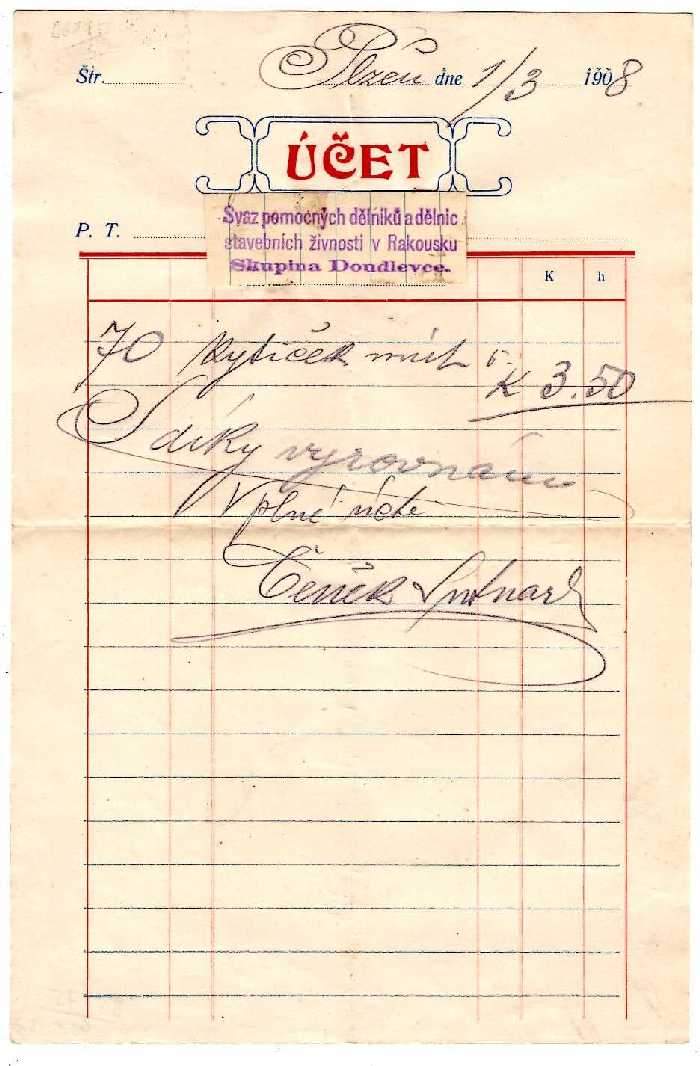 Str. Plzeň dne 1/3 1908
ÚČET
P. T.
Svaz pomocných dělníků a dělnic
stavebních živností v Rakousku
Skupina Doudlevce.
K h
70 kytiček
K 3.50
S díky vyrovnáno
V plné úctě
Čeněk